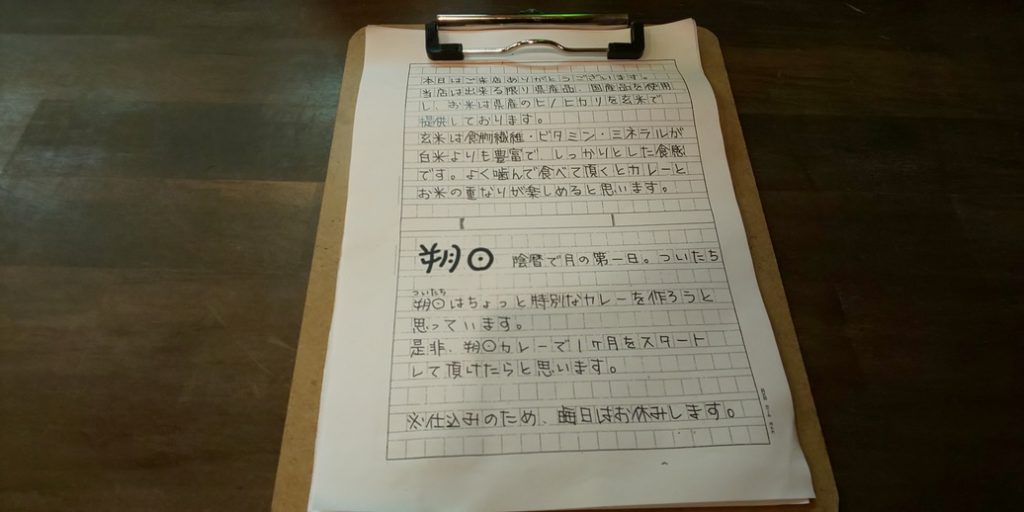 本日はご来店ありがとうございます。
当店は出来る限り県産品、国産品を使用
し、お米は県産のヒノヒカリを玄米で
提供しております。
玄米は食物繊維・ビタミン・ミネラルが
白米よりも豊富で、しっかりとした食感
です。よく噛んで食べて頂くとカレーと
お米の重なりが楽しめると思います。
朔⊙ 陰暦で月の第一日。ついたち
ついたち
朔⊙はちょっと特別なカレーを作ろうと
思っています。
是非、朔⊙カレーで1ヶ月をスタート
して頂けたらと思います。
※仕込みのため、晦日はお休みします。